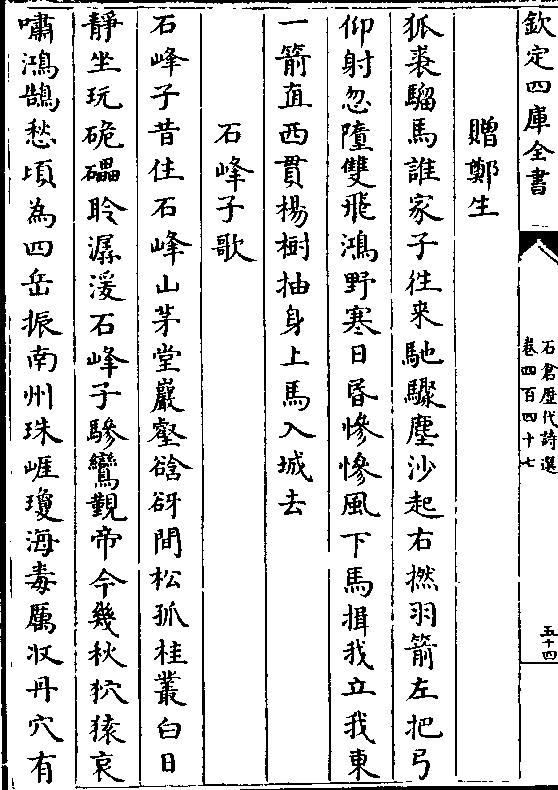 欽定四庫全書
石倉歷代詩選
卷四百四十七
五十四
贈鄭生
狐裘騮馬誰家子徃来馳驟塵沙起右撚羽箭左把弓
仰射忽墮雙飛鴻野寒日昏慘慘風下馬揖我立我東
一箭直西貫楊樹抽身上馬入城去
石峰子歌
石峰子昔住石峰山茅堂巖壑谽谺間松孤桂叢白日
靜坐玩硊礧聆潺湲石峰子驂鸞覲帝今幾秋狖猿哀
嘯鴻鵠愁頃為四岳振南州珠崖瓊海毒厲収丹穴有